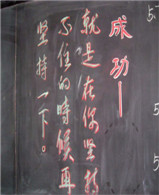 成功——
就是在你坚持
不住的時候再
坚持一下。